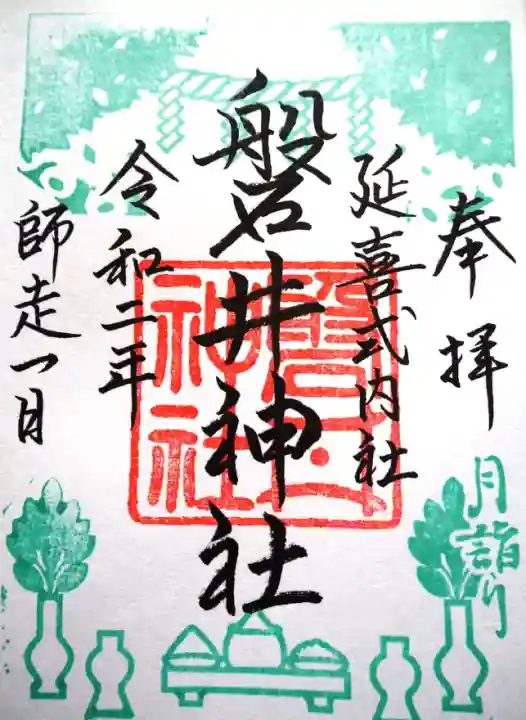 奉拝
延喜式内社
磐井神社
令和二年
師走一日
月詣り
磐井
神社